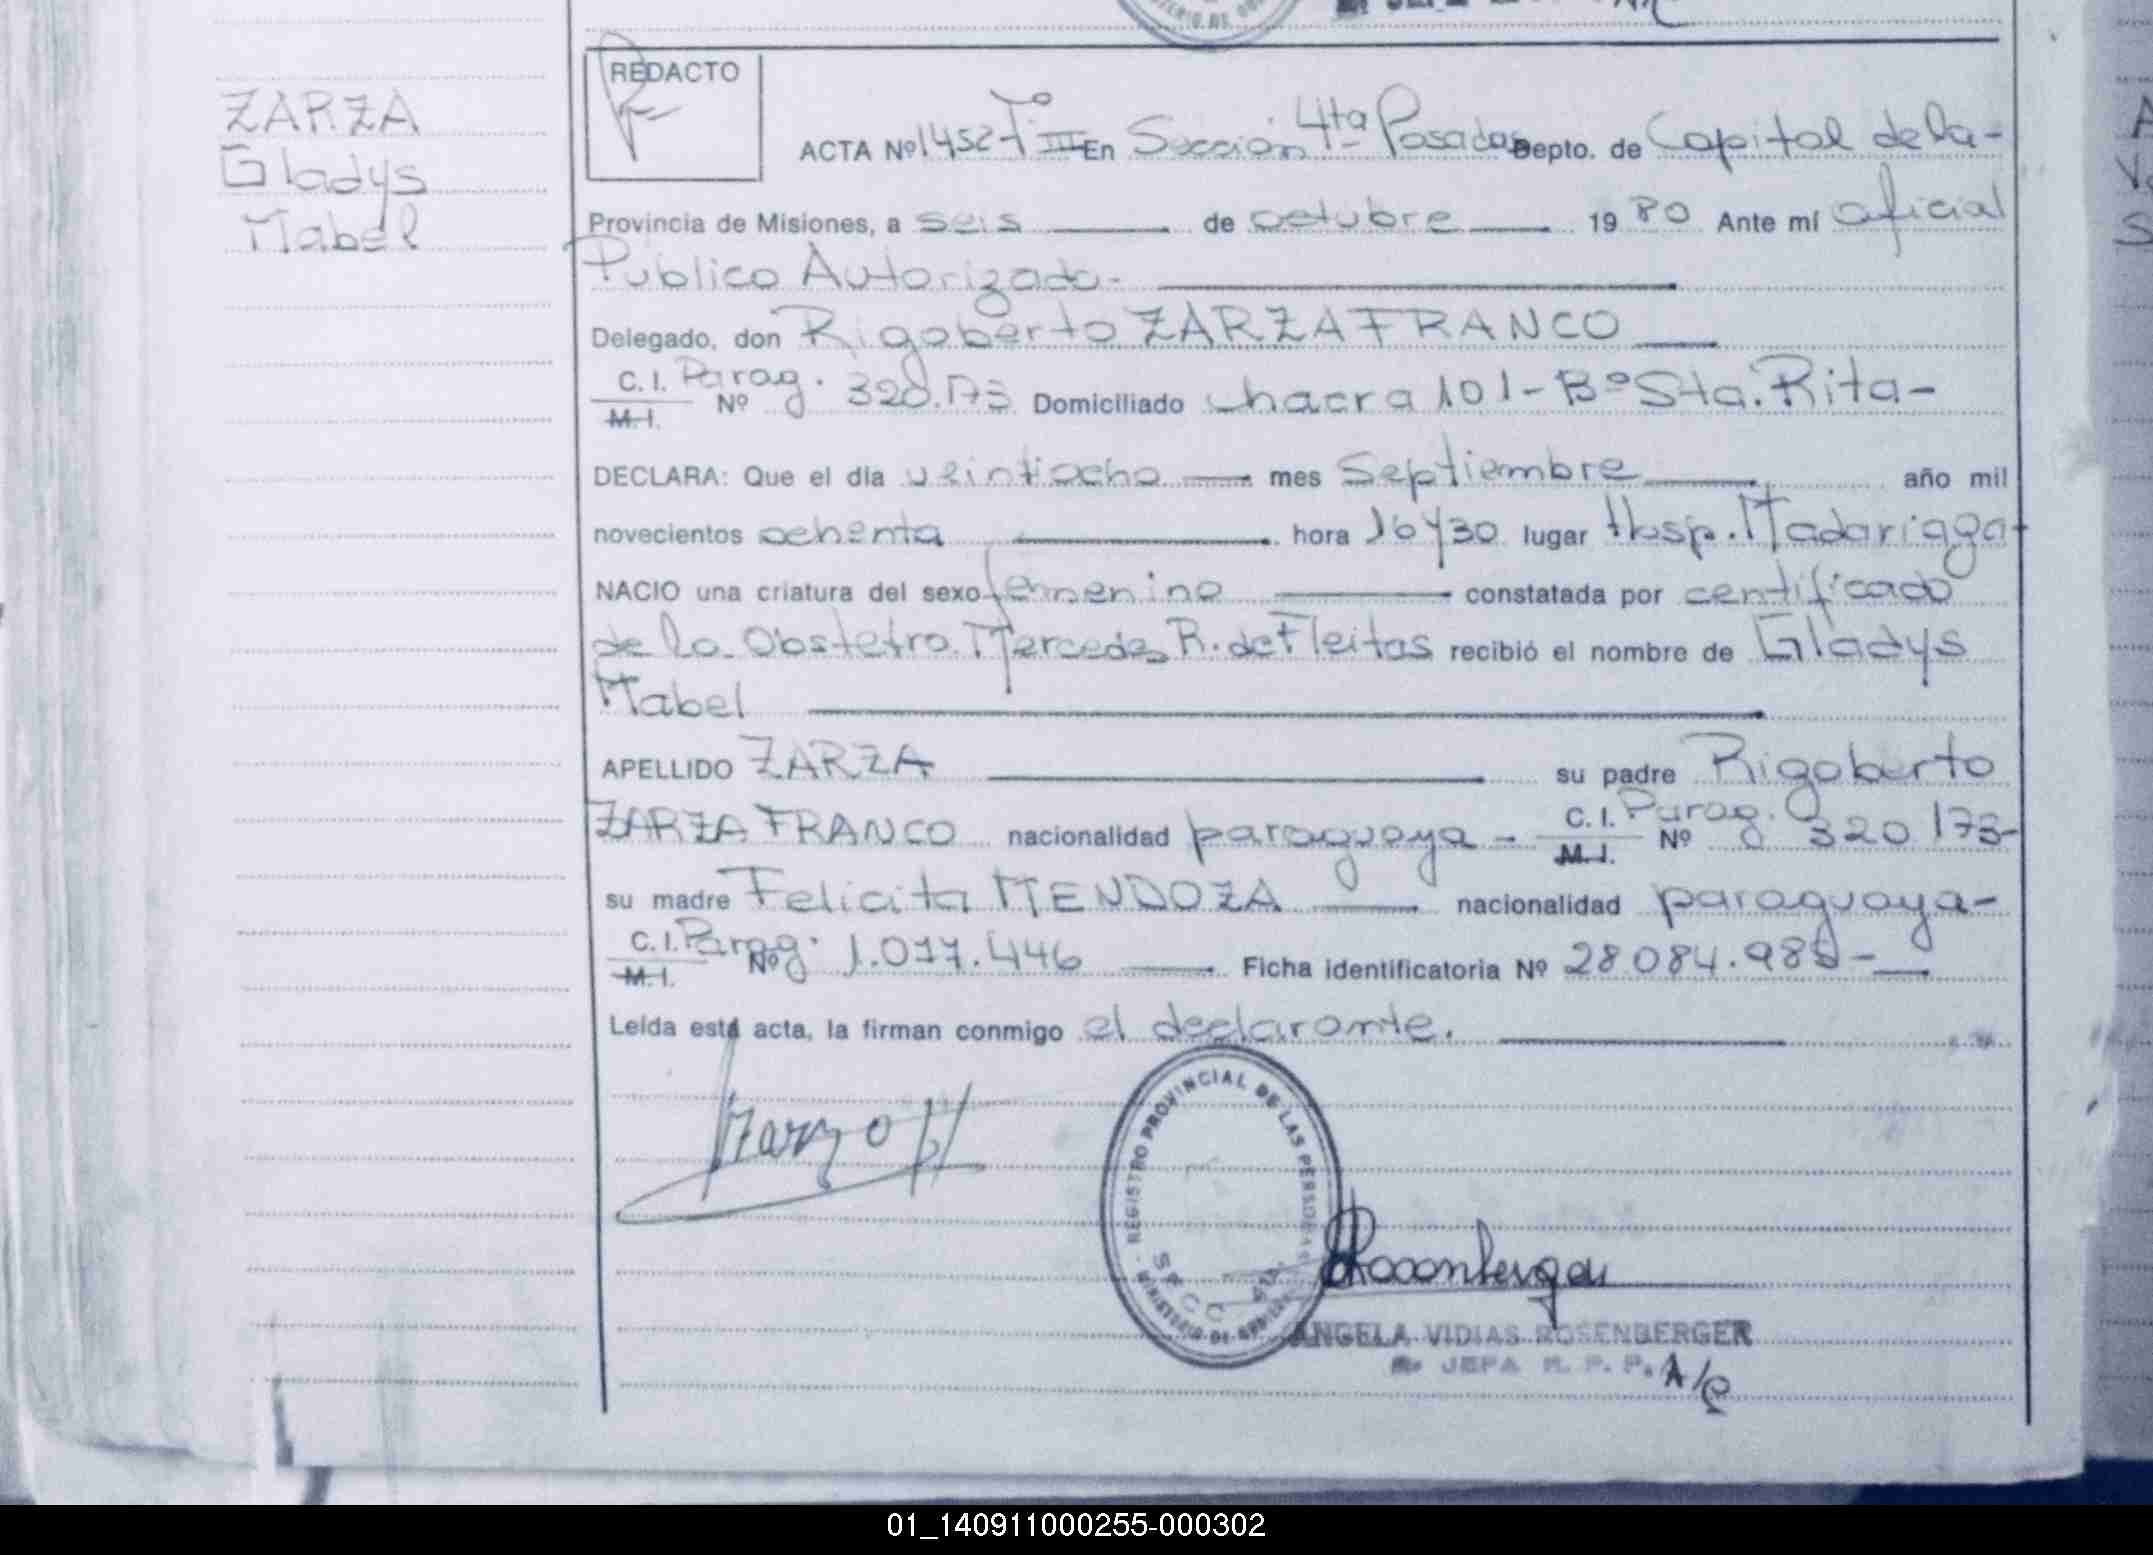 ZARZA
Gladys
Mabel
REDACTO
ACTA Nº 1452 Tº III En Sección 4ta Posadas Depto. de Capital de la-
Provincia de Misiones, a seis de octubre 1980 Ante mí oficial
Publico Autorizado-
Delegado, don Rigoberto ZARZA FRANCO
C. I. Parag.
M. I. Nº 320.173 Domiciliado chacra 101-Bº Sta. Rita-
DECLARA: Que el día veintiocho mes Septiembre año mil
novecientos ochenta hora 16y30 lugar Hosp. Madariaga-
NACIO una criatura del sexo femenino constatada por certificado
de la Obstetra. Mercedes R. de Fleitas recibió el nombre de Gladys
Mabel
APELLIDO ZARZA su padre Rigoberto
ZARZA FRANCO nacionalidad paraguaya - C. I. Parag.
M. I. Nº 320.173-
su madre Felicita MENDOZA nacionalidad paraguaya-
C. I. Parag.
M. I. Nº 1.017.446 Ficha identificatoria Nº 28084.985-
Leída está acta, la firman conmigo el declarante.
Zarza
REGISTRO PROVINCIAL DE LAS PERSONAS
SECC 4ta.
MINISTERIO DE GOBIERNO
ANGELA VIDIAS ROSENBERGER
JEFA R. P. P. A/C
01_140911000255-000302